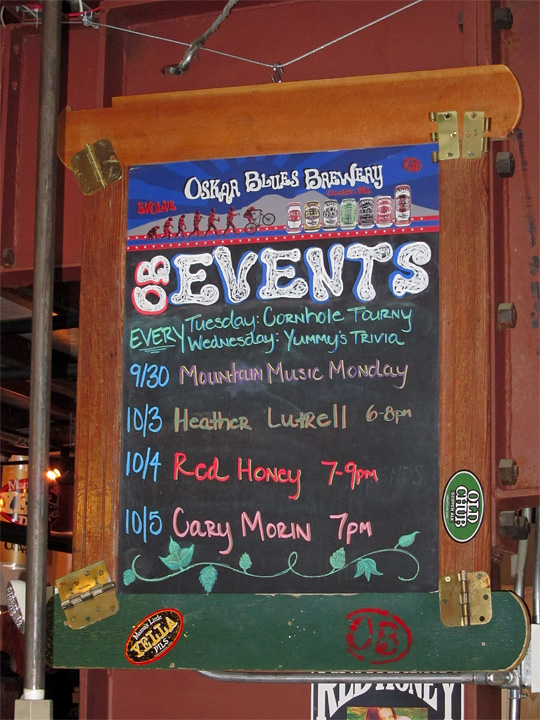 OSKAR BLUES BREWERY
EVOLVE
OB EVENTS
EVERY Tuesday: Cornhole Tourny
Wednesday: Yummy's Trivia
9/30 Mountain Music Monday
10/3 Heather Lutrell 6-8pm
10/4 Red Honey 7-9pm
10/5 Cary Morin 7pm
OLD
CHUB
SCOTCH ALE
Mama's Little
YELLA
PILS
RED HONEY